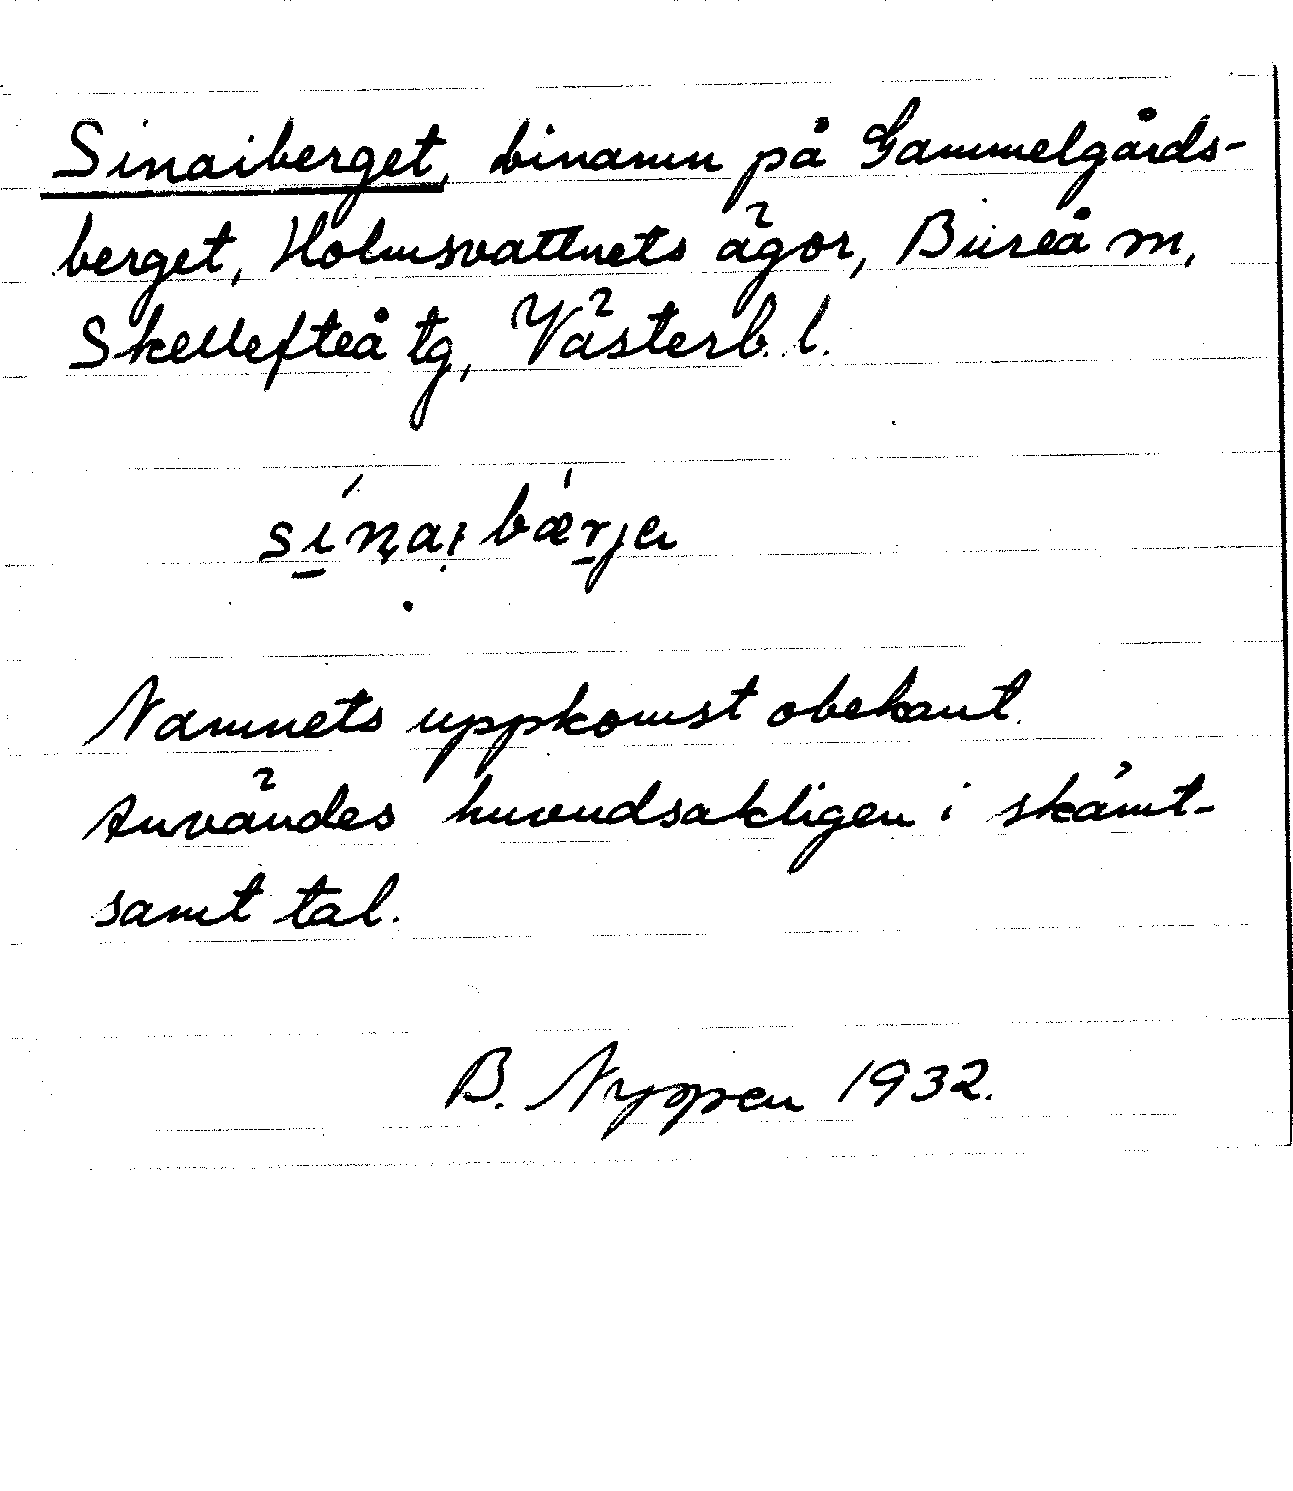 Sinaiberget, binamn på Gammelgårds-
berget, Holmsvattnets ägor, Bureå m,
Skellefteå tg, Västerb. l.
sína꞉bærja
Namnets uppkomst obekant.
Användes huvudsakligen i skämt-
samt tal.
B. Nyppen 1932.